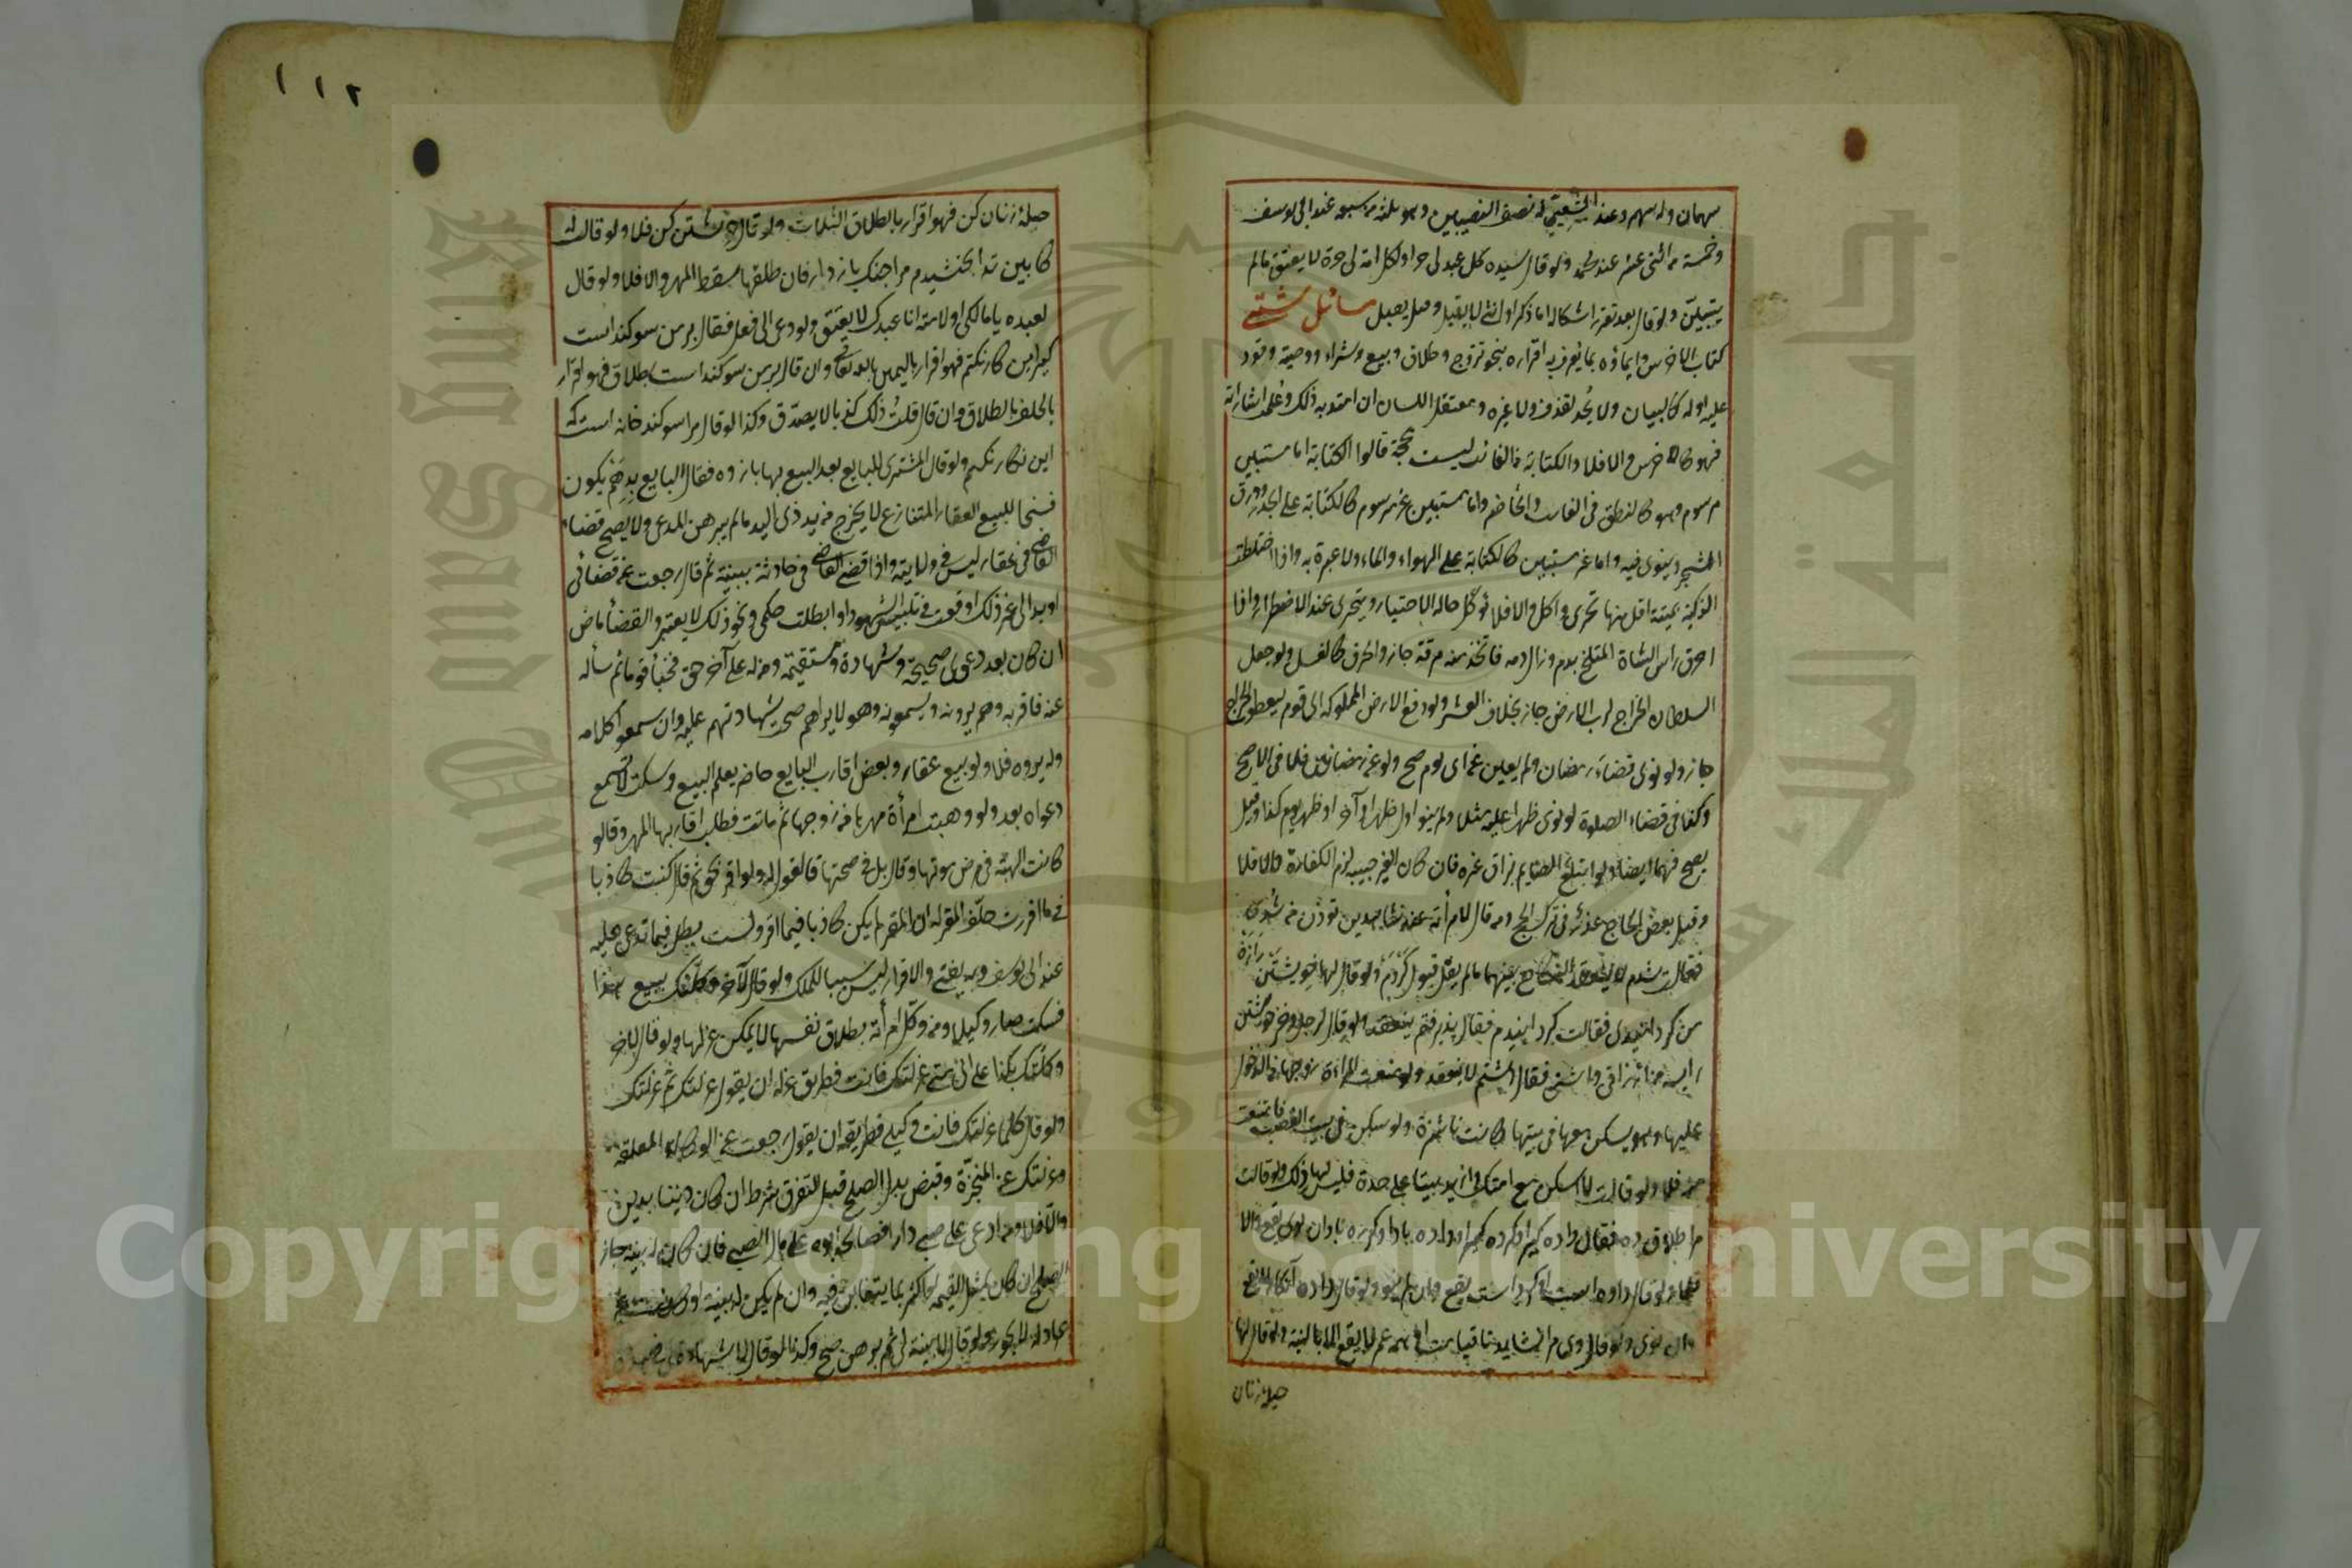 سهمان وله سهم وعند الشعبي له نصف النصيبين وهو ثلثة من سبعة عند ابي يوسف
وخمسة من اثني عشر عند محمد ولو قال سيده كل عبد لي حر او كل امة لي حرة لا يعتق مالم
يتبين ولو قال بعد تقرر اشكاله انا ذكر او انثى لا يقبل وقبله يقبل مسائل شتى
كتاب الاخرس وايماؤه بما يعرف به اقراره بنحو تزوج وطلاق وبيع وشراء ووصية وقود
عليه او له كالبيان ولا يحد لقذف ولا غيره ومعتقل اللسان ان امتد به ذلك وعلمت اشاراته
فهو كالاخرس والا فلا والكتابة من الغائب ليست بحجة قالوا الكتابة اما مستبين
مرسوم وهو كالنطق في الغائب والحاضر واما مستبين غير مرسوم كالكتابة على الجدر وورق
الشجر وينوى فيه واما غير مستبين كالكتابة على الهواء والماء ولا عبرة به واذا اختلطت
الذكية بميتة اقل منها تحرى واكل والا فلا تؤكل حالة الاختيار ويتحرى عند الاضطرار واذا
احرق راس الشاة المتلطخ بدم وزال دمه فاتخذ منه مرقة جاز والحرق كالغسل ولو جعل
السلطان الخراج لرب الارض جاز بخلاف العشر ولو دفع الارض المملوكة الى قوم ليعطوا الخراج
جاز ولو نوى قضاء رمضان ولم يعين عن اى يوم صح ولو عن رمضانين فلا في الاصح
وكذا في قضاء الصلوة لو نوى ظهرا عليه مثلا ولم ينو اول ظهر او آخر او ظهر يوم كذا وقيل
يصح فيهما ايضا ولو ابتلع الصايم بزاق غيره فان كان الغير حبيبه لزم الكفارة والا فلا
وقتل بعض الحاج عذر في ترك الحج ومن قال لامرأة عند شاهدين تو زن من شدى
فقالت شدم لا ينعقد النكاح بينهما مالم يقل قبول كردم ولو قال لها خويشتن را زن
من كردانيدى فقالت كردانيدم فقال پذيرفتم ينعقد ولو قال لرجل دختر خويشتن
را به پسر من ارزانى داشتى فقال داشتم لا ينعقد ولو منعت المرأة زوجها من الدخول
عليها وهو يسكن معها في بيتها كانت ناشزة ولو سكن في بيت الغصب فامتنعت
منه فلا ولو قالت لا اسكن مع امتك واريد بيتا على حدة فليس لها ذلك ولو قالت
مرا طلاق ده فقال داده كير او كرده كير او داده باد او كرده باد ان نوى يقع والا
فلا ولو قال داده است او كرده است يقع وان لم ينو ولو قال داده انكار لا يقع
وان نوى ولو قال وى مرا نشايد تا قيامت او همه عمر لا يقع الا بالنية ولو قال لها
حيله زنان
١١٢
حيله زنان كن فهو اقرار بالطلاق الثلاث ولو قال حيله خويشتن كن فلا ولو قالت له
كابين ترا بخشيدم مرا جنك بازدار فان طلقها سقط المهر والا فلا ولو قال
لعبده يا مالكي او لامته انا عبدك لا يعتق ولو دعي الى فعل فقال بر من سوكند است
كه اين كار نكنم فهو اقرار باليمين بالله تعالى وان قال بر من سوكند است بطلاق فهو اقرار
بالحلف بالطلاق وان قال قلت ذلك كذبا لا يصدق وكذا لو قال مرا سوكند خانه است كه
اين كار نكنم ولو قال المشترى للبايع بعد البيع بها باز ده فقال البايع بدهم يكون
فسخا للبيع العقار المتنازع لا يخرج من يد ذى اليد مالم يبرهن المدعى ولا يصح قضاء
القاضي في عقار ليس في ولايته واذا قضى القاضي في حادثة ببينة ثم قال رجعت عن قضائي
او بدا لى غير ذلك او وقعت في تلبيس الشهود او ابطلت حكمى ونحو ذلك لا يعتبر والقضاء ماض
ان كان بعد دعوى صحيحة وشهادة مستقيمة ومن له على آخر حق فخبأ قوما ثم سأله
عنه فاقر به وهم يرونه ويسمعونه وهو لا يراهم صحت شهادتهم عليه وان سمعوا كلامه
ولم يروه فلا ولو بيع عقار وبعض اقارب البايع حاضر يعلم البيع وسكت لا تسمع
دعواه بعد ولو وهبت امرأة مهرها من زوجها ثم ماتت فطلب اقاربها المهر وقالو
كانت الهبة في مرض موتها وقال بل في صحتها فالقول له ولو اقر بحق ثم قال كنت كاذبا
في ما اقررت حلف المقر له ان المقر لم يكن كاذبا فيما اقر ولست بمبطل فيما تدعى عليه
عند ابي يوسف وبه يفتى والاقرار ليس سببا للملك ولو قال لآخر وكلتك ببيع هذا
فسكت صار وكيلا ومن وكل امرأته بطلاق نفسها لا يملك عزلها ولو قال لآخر
وكلتك بكذا على انى متى عزلتك فانت وكيلى فطريق عزله ان يقول عزلتك ثم عزلتك
ولو قال كلما عزلتك فانت وكيلي فطريقه ان يقول رجعت عن الوكالة المعلقة
وعزلتك عن المنجزة وقبض بدل الصلح قبل التفرق شرط ان كان دينا بدين
والا فلا ومن ادعى على صبي دارا فصالحه ابوه على مال الصبي فان كان له بينة جاز
الصلح ان كان بمثل القيمة او اكثر بما يتغابن فيه وان لم يكن له بينة او كانت غير
عادلة لا يجوز ولو قال لا بينة لى ثم برهن صح وكذا لو قال لا شهادة لى